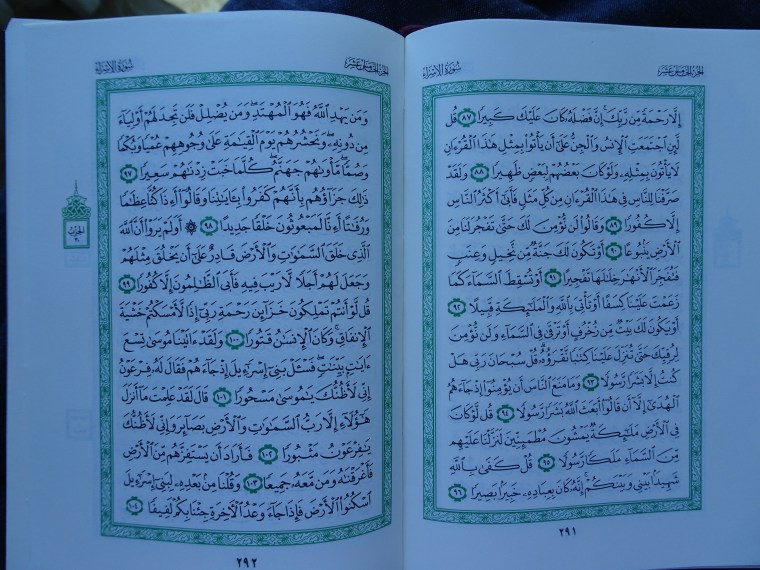 سُورَةُ الإِسْرَاءِ
الجُزْءُ الخَامِسَ عَشَرَ
إِلَّا رَحْمَةً مِّن رَّبِّكَ إِنَّ فَضْلَهُۥ كَانَ عَلَيْكَ كَبِيرًا ٨٧ قُل
لَّئِنِ ٱجْتَمَعَتِ ٱلْإِنسُ وَٱلْجِنُّ عَلَىٰٓ أَن يَأْتُوا۟ بِمِثْلِ هَٰذَا ٱلْقُرْءَانِ
لَا يَأْتُونَ بِمِثْلِهِۦ وَلَوْ كَانَ بَعْضُهُمْ لِبَعْضٍ ظَهِيرًا ٨٨ وَلَقَدْ
صَرَّفْنَا لِلنَّاسِ فِى هَٰذَا ٱلْقُرْءَانِ مِن كُلِّ مَثَلٍ فَأَبَىٰٓ أَكْثَرُ ٱلنَّاسِ
إِلَّا كُفُورًا ٨٩ وَقَالُوا۟ لَن نُّؤْمِنَ لَكَ حَتَّىٰ تَفْجُرَ لَنَا مِنَ
ٱلْأَرْضِ يَنۢبُوعًا ٩٠ أَوْ تَكُونَ لَكَ جَنَّةٌ مِّن نَّخِيلٍ وَعِنَبٍ
فَتُفَجِّرَ ٱلْأَنْهَٰرَ خِلَٰلَهَا تَفْجِيرًا ٩١ أَوْ تُسْقِطَ ٱلسَّمَآءَ كَمَا
زَعَمْتَ عَلَيْنَا كِسَفًا أَوْ تَأْتِىَ بِٱللَّهِ وَٱلْمَلَٰٓئِكَةِ قَبِيلًا ٩٢
أَوْ يَكُونَ لَكَ بَيْتٌ مِّن زُخْرُفٍ أَوْ تَرْقَىٰ فِى ٱلسَّمَآءِ وَلَن نُّؤْمِنَ
لِرُقِيِّكَ حَتَّىٰ تُنَزِّلَ عَلَيْنَا كِتَٰبًا نَّقْرَؤُهُۥ قُلْ سُبْحَانَ رَبِّى هَلْ
كُنتُ إِلَّا بَشَرًا رَّسُولًا ٩٣ وَمَا مَنَعَ ٱلنَّاسَ أَن يُؤْمِنُوٓا۟ إِذْ جَآءَهُمُ
ٱلْهُدَىٰٓ إِلَّآ أَن قَالُوٓا۟ أَبَعَثَ ٱللَّهُ بَشَرًا رَّسُولًا ٩٤ قُل لَّوْ كَانَ
فِى ٱلْأَرْضِ مَلَٰٓئِكَةٌ يَمْشُونَ مُطْمَئِنِّينَ لَنَزَّلْنَا عَلَيْهِم
مِّنَ ٱلسَّمَآءِ مَلَكًا رَّسُولًا ٩٥ قُلْ كَفَىٰ بِٱللَّهِ
شَهِيدًۢا بَيْنِى وَبَيْنَكُمْ إِنَّهُۥ كَانَ بِعِبَادِهِۦ خَبِيرًۢا بَصِيرًا ٩٦
٢٩١
الجُزْءُ الخَامِسَ عَشَرَ
سُورَةُ الإِسْرَاءِ
وَمَن يَهْدِ ٱللَّهُ فَهُوَ ٱلْمُهْتَدِ وَمَن يُضْلِلْ فَلَن تَجِدَ لَهُمْ أَوْلِيَآءَ
مِن دُونِهِۦ وَنَحْشُرُهُمْ يَوْمَ ٱلْقِيَٰمَةِ عَلَىٰ وُجُوهِهِمْ عُمْيًا وَبُكْمًا
وَصُمًّا مَّأْوَىٰهُمْ جَهَنَّمُ كُلَّمَا خَبَتْ زِدْنَٰهُمْ سَعِيرًا ٩٧
ذَٰلِكَ جَزَآؤُهُم بِأَنَّهُمْ كَفَرُوا۟ بِـَٔايَٰتِنَا وَقَالُوٓا۟ أَءِذَا كُنَّا عِظَٰمًا
وَرُفَٰتًا أَءِنَّا لَمَبْعُوثُونَ خَلْقًا جَدِيدًا ٩٨ ۞ أَوَلَمْ يَرَوْا۟ أَنَّ ٱللَّهَ
ٱلَّذِى خَلَقَ ٱلسَّمَٰوَٰتِ وَٱلْأَرْضَ قَادِرٌ عَلَىٰٓ أَن يَخْلُقَ مِثْلَهُمْ
وَجَعَلَ لَهُمْ أَجَلًا لَّا رَيْبَ فِيهِ فَأَبَى ٱلظَّٰلِمُونَ إِلَّا كُفُورًا ٩٩
قُل لَّوْ أَنتُمْ تَمْلِكُونَ خَزَآئِنَ رَحْمَةِ رَبِّىٓ إِذًا لَّأَمْسَكْتُمْ خَشْيَةَ
ٱلْإِنفَاقِ وَكَانَ ٱلْإِنسَٰنُ قَتُورًا ١٠٠ وَلَقَدْ ءَاتَيْنَا مُوسَىٰ تِسْعَ
ءَايَٰتٍۭ بَيِّنَٰتٍ فَسْـَٔلْ بَنِىٓ إِسْرَٰٓءِيلَ إِذْ جَآءَهُمْ فَقَالَ لَهُۥ فِرْعَوْنُ
إِنِّى لَأَظُنُّكَ يَٰمُوسَىٰ مَسْحُورًا ١٠١ قَالَ لَقَدْ عَلِمْتَ مَآ أَنزَلَ
هَٰٓؤُلَآءِ إِلَّا رَبُّ ٱلسَّمَٰوَٰتِ وَٱلْأَرْضِ بَصَآئِرَ وَإِنِّى لَأَظُنُّكَ
يَٰفِرْعَوْنُ مَثْبُورًا ١٠٢ فَأَرَادَ أَن يَسْتَفِزَّهُم مِّنَ ٱلْأَرْضِ
فَأَغْرَقْنَٰهُ وَمَن مَّعَهُۥ جَمِيعًا ١٠٣ وَقُلْنَا مِنۢ بَعْدِهِۦ لِبَنِىٓ إِسْرَٰٓءِيلَ
ٱسْكُنُوا۟ ٱلْأَرْضَ فَإِذَا جَآءَ وَعْدُ ٱلْءَاخِرَةِ جِئْنَا بِكُمْ لَفِيفًا ١٠٤
الحزب
٢٩٢